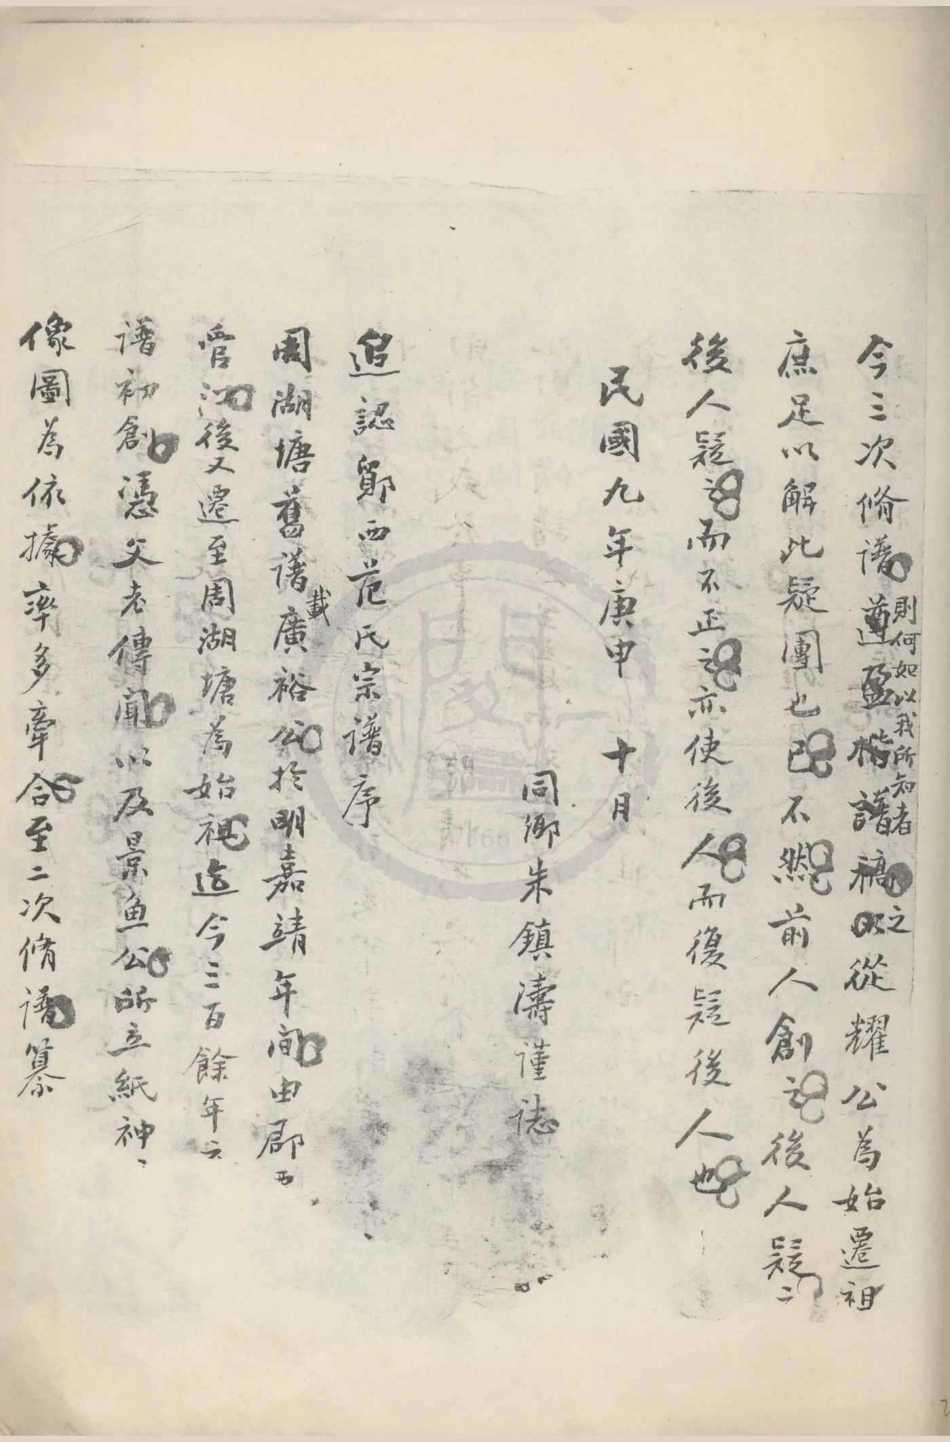 今三次脩譜遵盈楷譜稿以從耀公為始遷祖
則何如以我所知者之
庶足以解此疑團也已不然前人創之後人疑二
後人疑之而不正之亦使後人而復疑後人也
民國九年庚申 十月
同鄉朱鎮濤謹誌
追認鄮西范氏宗譜序
周湖塘舊譜載廣裕公於明嘉靖年間由郡西
管江後又遷至周湖塘為始祖迄今三百餘年云
譜初創憑父老傳聞以及景魚公所立紙神
像圖為依據率多牽合至二次脩譜纂